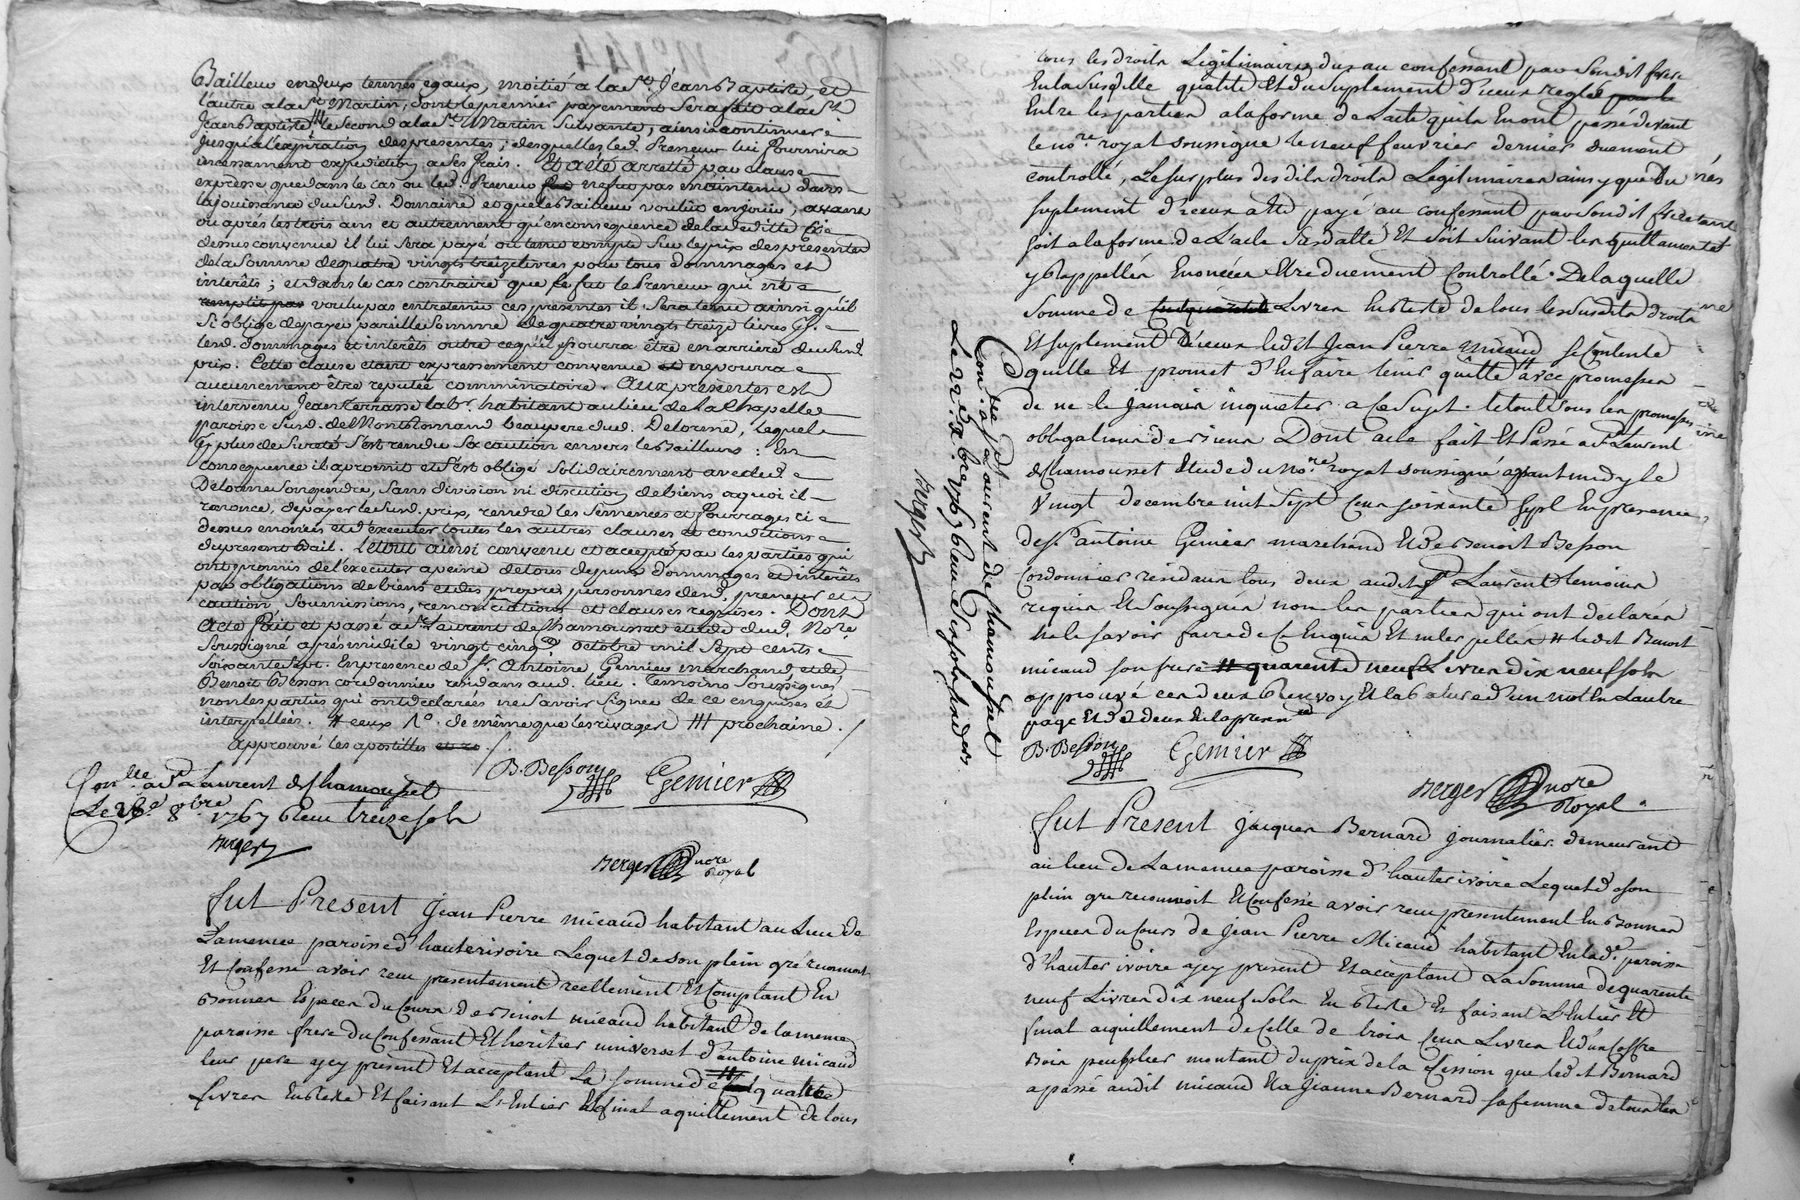 Bailleur en deux termes egaux, moitié a la St. Jean Baptiste et
l'autre a la St. Martin, dont le premier payement sera fait a la St.
Jean Baptiste /// le second a la St. Martin suivante, ainsi a continuer
jusqu'a l'expiration des presentes; desquelles led. Preneur lui fournira
incessament expedition a ses frais. Et a été arretté par clause
expresse que dans le cas ou led. Preneur ne fut pas maintenu dans
la jouissance du susd. Domaine et que le Bailleur voulut en jouir, avant
ou après les trois ans et autrement qu'en consequence de la ditte
dessus convenue il lui sera payé ou tenu compte sur le prix des presentes
de la somme de quatre vingts treize livres pour tous dommages et
interêts; et dans le cas contraire que ce fut le Preneur qui ne
voulu pas entretenir ces presentes il sera tenu ainsi qu'il
s'oblige de payer pareille somme de quatre vingts treize livres
dommages et interêts outre ce qu'il pourra être en arriere du susd.
prix. Cette clause etant expressement convenue et ne pourra
aucunement être reputée comminatoire. Aux presentes est
intervenu Jean Terrasse labr. habitant au lieu de la Chapelle
paroisse susd. de Montromand beaupere dud. Delorme, lequel
plus de sureté s'est rendu sa caution envers le Bailleur: En
consequence il a promit et s'est obligé solidairement avec led.
Delorme son gendre, sans division ni discution de biens a quoi il
renonce, de payer le susd. prix, rendre les semences et fourrages ci
dessus enoncés et d'executer toutes les autres clauses et conditions
du present Bail. Le tout ainsi convenu et accepté par les parties qui
ont promis de l'executer a peine de tous depens dommages et interêts
par obligations de biens et des propres personnes desd. preneur et
caution, soumissions, renonciations et clauses requises. Dont
Acte fait et passé a St. Laurent de Chamousset etude dud. Nore.
soussigné après midi le vingt cinq octobre mil sept cents
soixante sept. En presence de sr. Antoine Gemier marchand et de
Benoit Besson cordonnier residans aud. lieu. Temoins soussignés
non les parties qui ont declarées ne savoir signer de ce enquises et
interpellées. # ceux No. de même que les rivages /// prochaine.
approuvé les apostilles
B. Besson Gemier
Conlle. a St. Laurent de Chamousset
Le 28e 8bre 1767 Reçu treize sols
Berger
Berger nore Royal
Fut Present Jean Pierre Micaud habitant au Lieu de
Lamenue paroisse d'hauterivoire Lequel de son plein gré reconnoit
Et Confesse avoir reçu presentement réellement Et Comptant En
Bonnes Especes du Cours de Benoit micaud habitant de la meme
paroisse frere du Confessant Et heritier universel d'antoine micaud
leur pere ycy présent Et acceptant La Somme de
Livres En Reste Et faisant L'Entier Et final aquittement de tous
tous les droits Legitimaires dus au confessant par son dit frere
En la Susditte qualité Et du Suplement d'iceux reglé
Entre les parties a la forme de L'acte qu'ils En ont passé devant
le nore. royal soussigné le neuf fevrier dernier duement
controllé, Le Surplus des dits droits Legitimaires ainsy que du
suplement d'iceux a été payé au confessant par son dit frere tant
soit a la forme de L'acte Susdatté Et Soit Suivant les quittances
y Rappellées Enoncées Et duement Controllé. De laquelle
Somme de Livres En Reste de tous les Susdits droits
Et Suplement d'iceux ledit Jean Pierre Micaud se Contente
quitte Et promet d'En faire tenir quitte # avec promesses
de ne le jamais inquieter a Ce Sujet. le tout Sous les promesses
obligations de Biens Dont acte fait Et Passé a St. Laurent
de Chamousset Etude du Nore. royal soussigné avant midy le
Vingt decembre mil Sept Cens soixante Sept En presence
de Sr. antoine Gemier marchand Et de Benoit Besson
Cordonnier residants tous deux audit St. Laurent temoins
requis Et Soussignés non les parties qui ont declarés
ne le savoir faire de Ce Enquis Et interpellés # ledit Benoit
micaud son frere # quarente neuf Livres dix neuf sols
approuvé ces deux Renvoy Et la Rature d'un mot En L'autre
page Et de deux En la presente
B. Besson Gemier
Berger nore Royal
Conlle. a St. Laurent de Chamousset
Le 22e Xbre 1767 Reçu
Berger
Fut Present Jacques Bernard journalier demeurant
au lieu de Lamenue paroisse d'hauterivoire Lequel de son
plein gré reconnoit Et Confesse avoir reçu presentement En Bonnes
Especes du Cours de Jean Pierre Micaud habitant En lade. paroisse
d'hauterivoire ycy present Et acceptant La Somme de quarente
neuf Livres dix neuf sols En Reste Et faisant L'Entier Et
final aquittement de Celle de trois Cens Livres Et d'un Coffre
Bois peuplier montant du prix de la Cession que ledit Bernard
a passé audit micaud Et a Jeanne Bernard sa femme de tous les